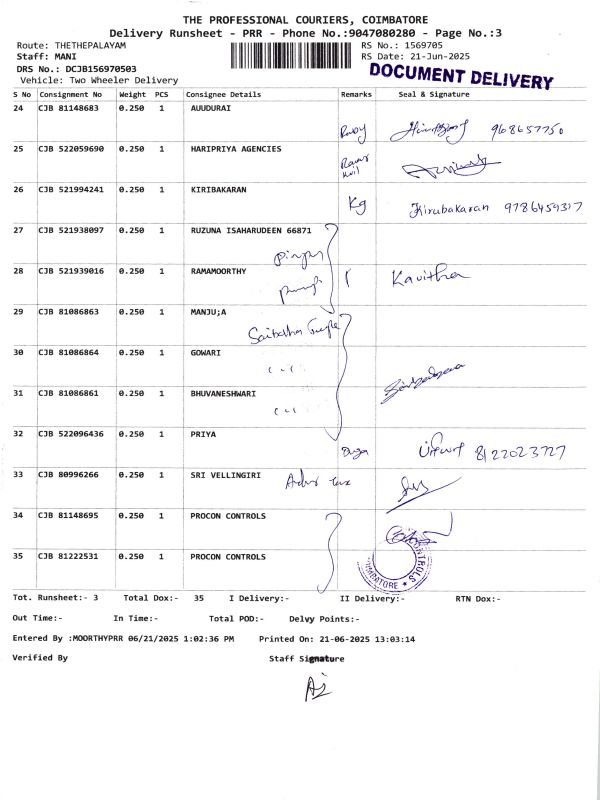 THE PROFESSIONAL COURIERS, COIMBATORE
Delivery Runsheet - PRR - Phone No.:9047080280 - Page No.:3
Route: THETHEPALAYAM RS No.: 1569705
Staff: MANI RS Date: 21-Jun-2025
DRS No.: DCJB156970503 DOCUMENT DELIVERY
Vehicle: Two Wheeler Delivery
S No Consignment No Weight PCS Consignee Details Remarks Seal & Signature
24 CJB 81148683 0.250 1 AUUDURAI
968657750
25 CJB 522059690 0.250 1 HARIPRIYA AGENCIES
26 CJB 521994241 0.250 1 KIRIBAKARAN
Kg Kirubakaran 9786459317
27 CJB 521938097 0.250 1 RUZUNA ISAHARUDEEN 66871
28 CJB 521939016 0.250 1 RAMAMOORTHY
Kavitha
29 CJB 81086863 0.250 1 MANJU;A
Saibabha Temple
30 CJB 81086864 0.250 1 GOWARI
31 CJB 81086861 0.250 1 BHUVANESHWARI
32 CJB 522096436 0.250 1 PRIYA
8122023727
33 CJB 80996266 0.250 1 SRI VELLINGIRI
34 CJB 81148695 0.250 1 PROCON CONTROLS
35 CJB 81222531 0.250 1 PROCON CONTROLS
Tot. Runsheet:- 3 Total Dox:- 35 I Delivery:- II Delivery:- RTN Dox:-
Out Time:- In Time:- Total POD:- Delvy Points:-
Entered By :MOORTHYPRR 06/21/2025 1:02:36 PM Printed On: 21-06-2025 13:03:14
Verified By Staff Signature